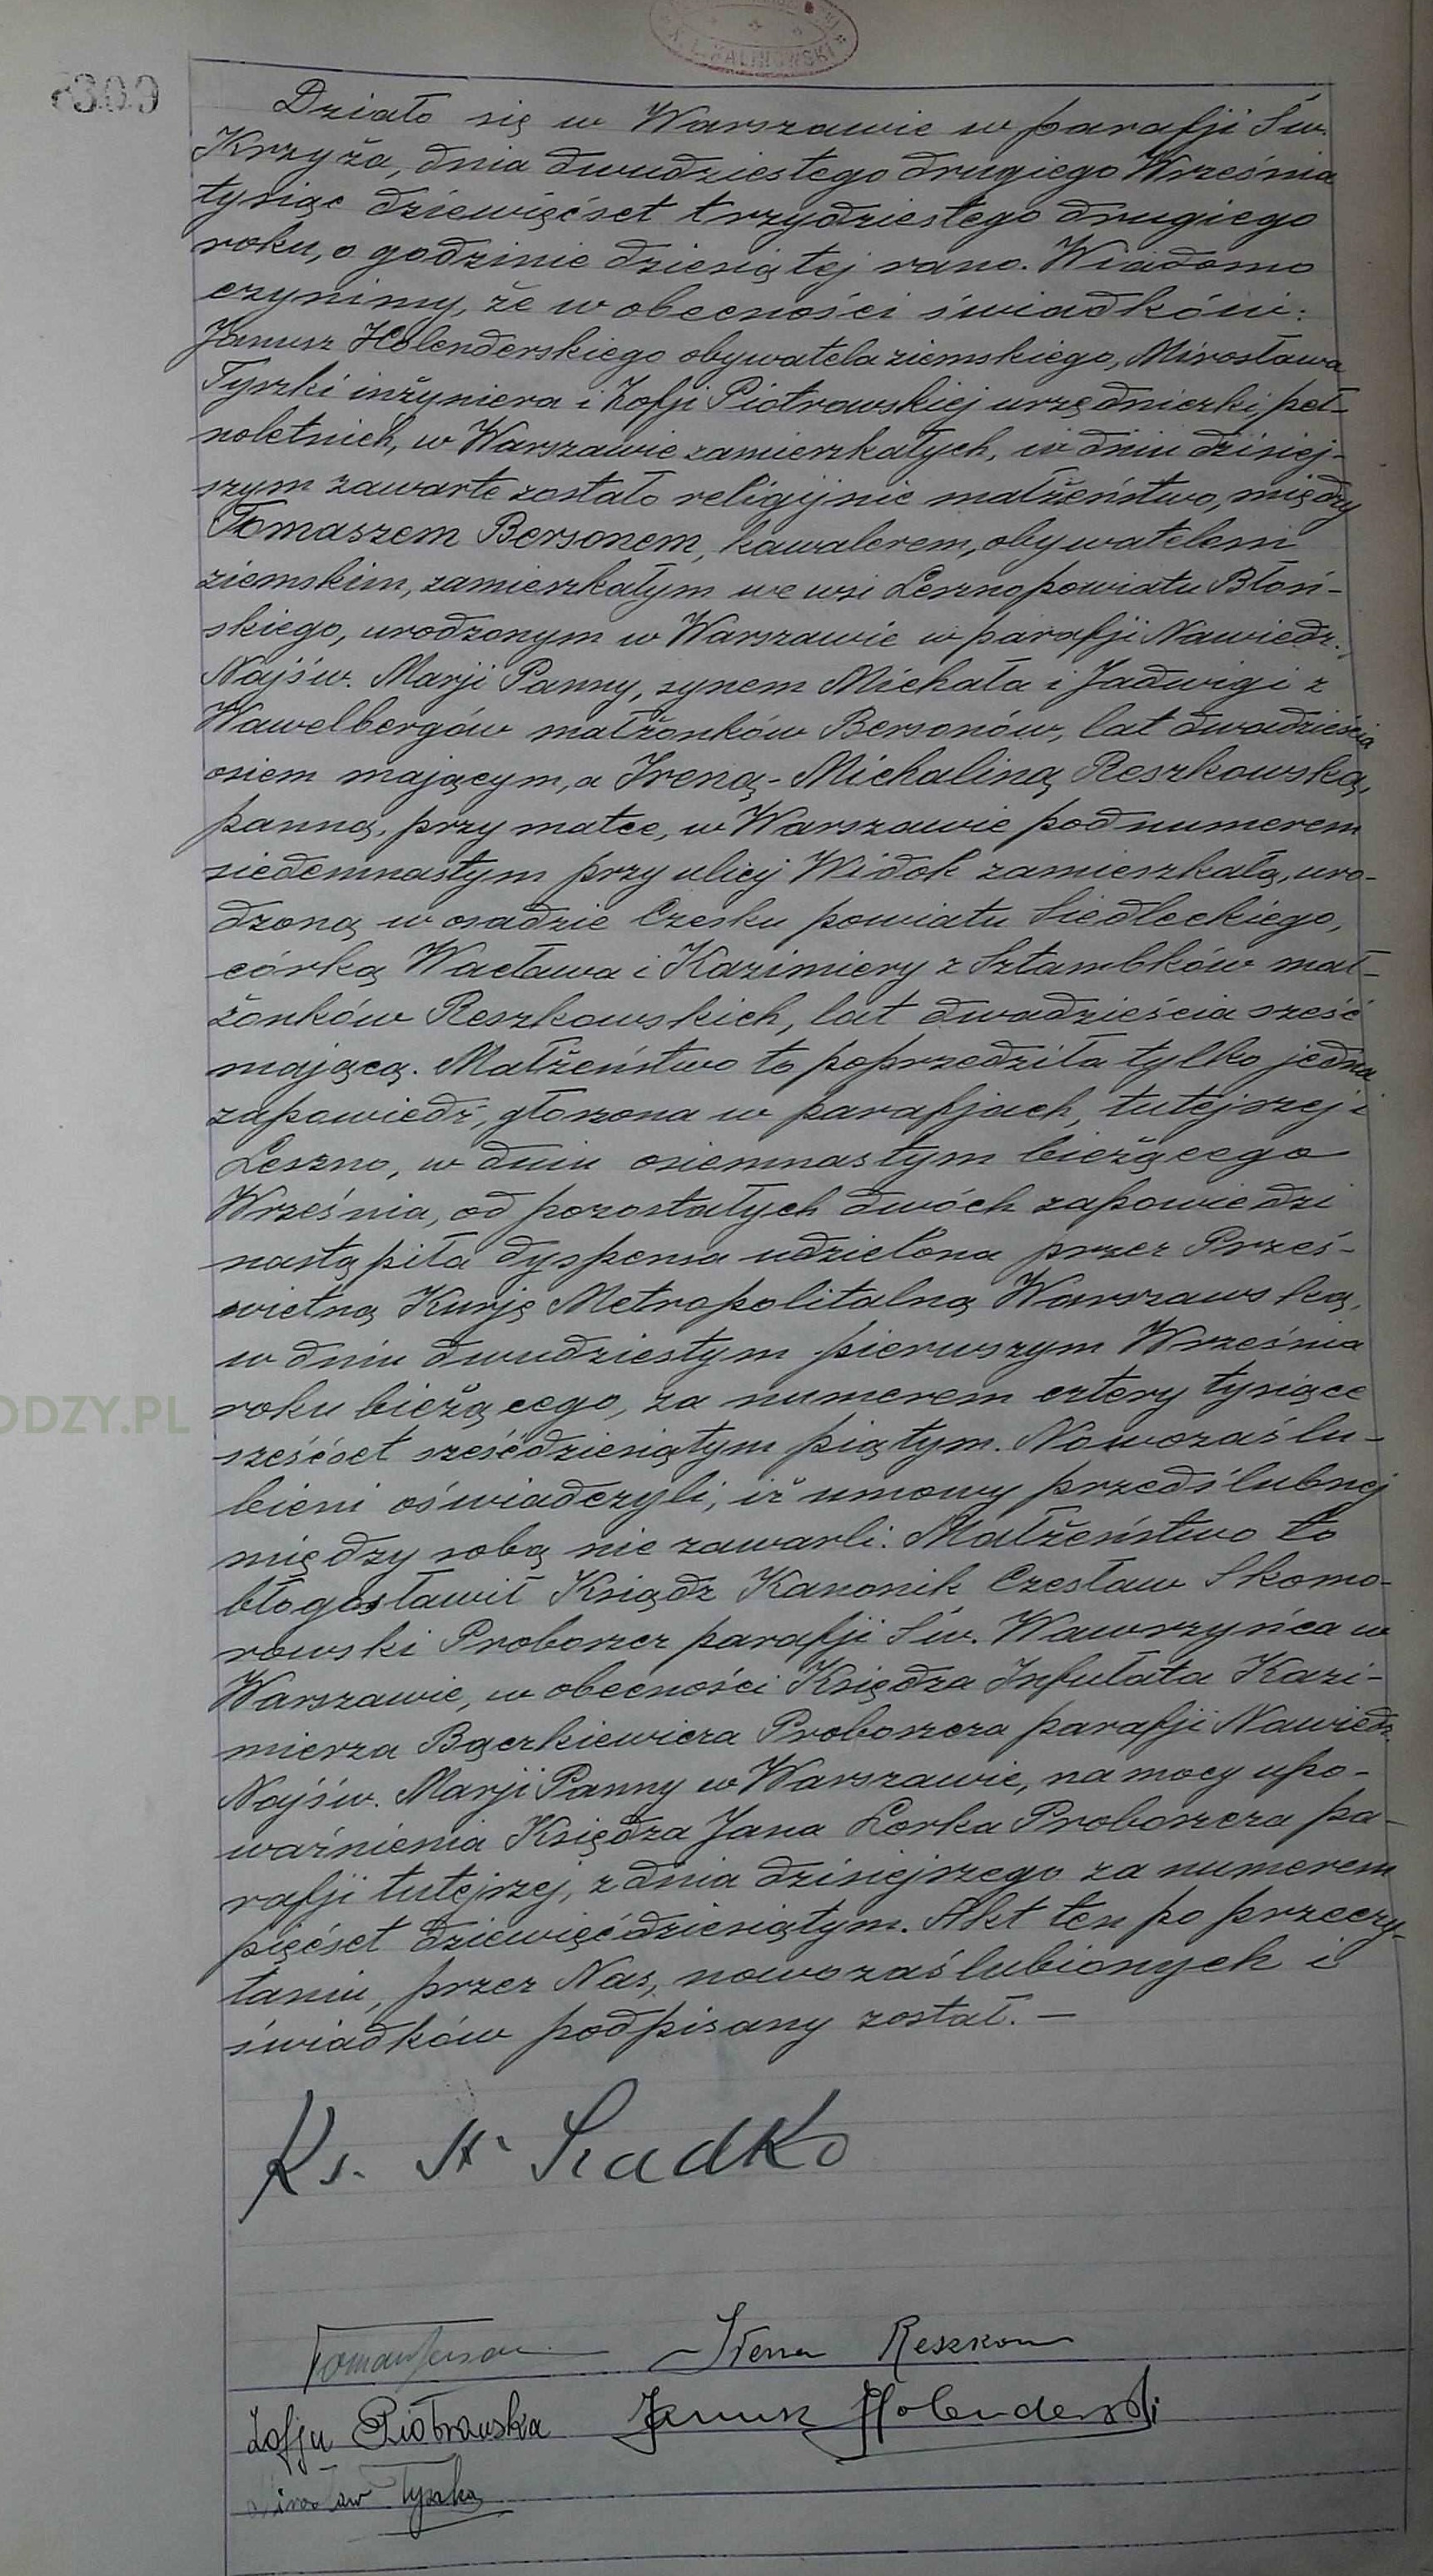 KALINOWSKI
309
Działo się w Warszawie w parafji Św.
Krzyża, dnia dwudziestego drugiego Września
tysiąc dziewięćset trzydziestego drugiego
roku, o godzinie dziesiątej rano. Wiadomo
czynimy, że w obecności świadków:
Janusz Holenderskiego obywatela ziemskiego, Mirosława
Tyszki inżyniera i Zofji Piotrowskiej urzędniczki, peł-
noletnich, w Warszawie zamieszkałych, w dniu dzisiej-
szym zawarte zostało religijnie małżeństwo, między
Tomaszem Bersonem, kawalerem, obywatelem
ziemskim, zamieszkałym we wsi Leszno powiatu Błoń-
skiego, urodzonym w Warszawie w parafji Nawiedz.
Najśw. Marji Panny, synem Michała i Jadwigi z
Wawelbergów małżonków Bersonów, lat dwadzieścia
osiem mającym, a Ireną-Michaliną Reszkowską,
panną, przy matce, w Warszawie pod numerem
siedemnastym przy ulicy Widok zamieszkałą, uro-
dzoną w osadzie Czesku powiatu Siedleckiego,
córką Wacława i Kazimiery z Sztambków mał-
żonków Reszkowskich, lat dwadzieścia sześć
mającą. Małżeństwo to poprzedziła tylko jedna
zapowiedź, głoszona w parafjach, tutejszej i
Leszno, w dniu osiemnastym bieżącego
Września, od pozostałych dwóch zapowiedzi
nastąpiła dyspensa udzielona przez Prześ-
wietną Kurję Metropolitalną Warszawską,
w dniu dwudziestym pierwszym Września
roku bieżącego, za numerem cztery tysiące
sześćset sześćdziesiątym piątym. Nowozaślu-
bieni oświadczyli, iż umowy przedślubnej
między sobą nie zawarli. Małżeństwo to
błogosławił Ksiądz Kanonik Czesław Skomo-
rowski Proboszcz parafji Św. Wawrzyńca w
Warszawie, w obecności Księdza Infułata Kazi-
mierza Bączkiewicza Proboszcza parafji Nawiedz.
Najśw. Marji Panny w Warszawie, na mocy upo-
ważnienia Księdza Jana Lorka Proboszcza pa-
rafji tutejszej, z dnia dzisiejszego za numerem
pięćset dziewięćdziesiątym. Akt ten po przeczy-
taniu, przez Nas, nowozaślubionych i
świadków podpisany został. —
ODZY.PL
Ks. St. Siadko
Tomasz Berson Irena Reszkow
Zofja Piotrowska Janusz Holenderski
Mirosław Tyszka